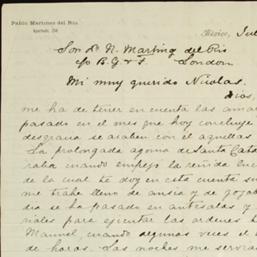 Pablo Martínez del Río
Apartado, 250
México, Jul
Sor Dn N. Martinez del Rio
c/o B. G. & S. London
Mi muy querido Nicolas.
Dios,
me ha de tener en cuenta las amar
pasado en el mes que hoy concluye
desgracia se acaben con el aquellas
La prolongada agonia de Santa Cata
raba cuando empezó la reñida luc
de la cual te doy en esta cuenta su
me trahe lleno de ansia y de zozob
dia se ha pasado en antesalas y
riales para ejecutar las ordenes
Manuel, cuando algunas veces el
de horas. Las noches me servian